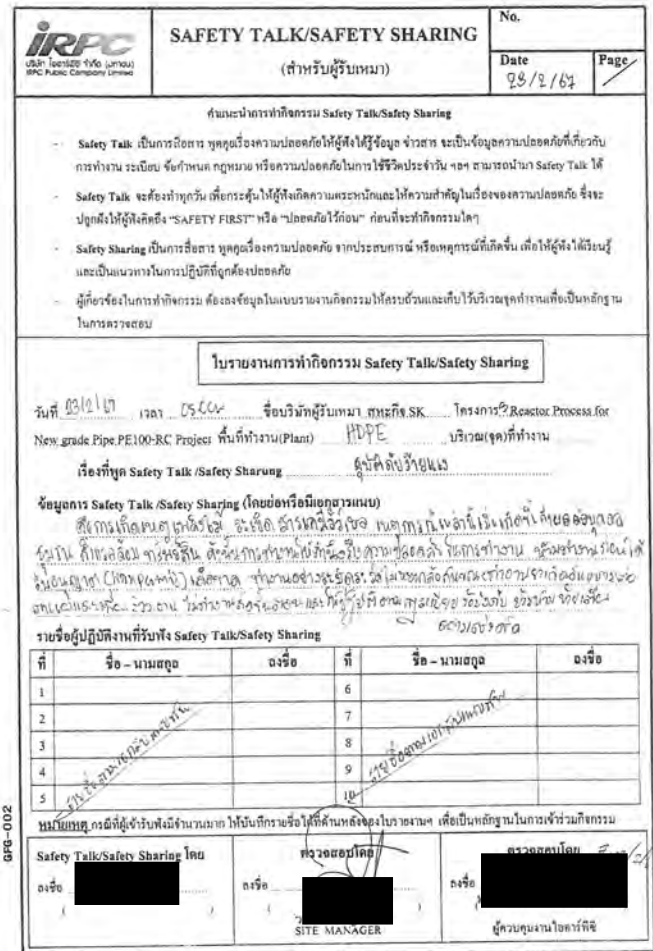 IRPC
บริษัท ไออาร์พีซี จำกัด (มหาชน)
IRPC Public Company Limited
SAFETY TALK/SAFETY SHARING
(สำหรับผู้รับเหมา)
No.
Date
23/2/67
Page
คำแนะนำการทำกิจกรรม Safety Talk/Safety Sharing
- Safety Talk เป็นการสื่อสาร พูดคุยเรื่องความปลอดภัยให้ผู้ฟังได้รู้ข้อมูล ข่าวสาร จะเป็นข้อมูลความปลอดภัยที่เกี่ยวกับ
การทำงาน ระเบียบ ข้อกำหนด กฎหมาย หรือความปลอดภัยในการใช้ชีวิตประจำวัน ฯลฯ สามารถนำมา Safety Talk ได้
- Safety Talk จะต้องทำทุกวัน เพื่อกระตุ้นให้ผู้ฟังเกิดความตระหนักและให้ความสำคัญในเรื่องของความปลอดภัย ซึ่งจะ
ปลูกฝังให้ผู้ฟังคิดถึง “SAFETY FIRST” หรือ “ปลอดภัยไว้ก่อน” ก่อนที่จะทำกิจกรรมใดๆ
- Safety Sharing เป็นการสื่อสาร พูดคุยเรื่องความปลอดภัย จากประสบการณ์ หรือเหตุการณ์ที่เกิดขึ้น เพื่อให้ผู้ฟังได้เรียนรู้
และเป็นแนวทางในการปฏิบัติที่ถูกต้องปลอดภัย
- ผู้เกี่ยวข้องในการทำกิจกรรม ต้องลงข้อมูลในแบบรายงานกิจกรรมให้ครบถ้วนและเก็บไว้บริเวณจุดทำงานเพื่อเป็นหลักฐาน
ในการตรวจสอบ
ใบรายงานการทำกิจกรรม Safety Talk/Safety Sharing
วันที่ 23/2/67 เวลา ชื่อบริษัทผู้รับเหมา สหะกิจ SK โครงการ Reactor Process for
New grade Pipe PE100-RC Project พื้นที่ทำงาน(Plant) HDPE บริเวณ(จุด)ที่ทำงาน
เรื่องที่พูด Safety Talk /Safety Sharung อุบัติภัยร้ายแรง
ข้อมูลการ Safety Talk /Safety Sharing (โดยย่อหรือมีเอกสารแนบ)
คือการเกิดเหตุเพลิงไหม้ ระเบิด สารเคมีรั่วไหล เหตุการณ์เหล่านี้
สิ่งแวดล้อม ทรัพย์สิน ดังนั้นการทำงาน ความปลอดภัย ในการทำงาน
ทำงานอย่างระมัดระวัง
รายชื่อผู้ปฏิบัติงานที่รับฟัง Safety Talk/Safety Sharing
ที่ ชื่อ – นามสกุล ลงชื่อ ที่ ชื่อ – นามสกุล ลงชื่อ
1 6
2 7
3 8
4 9
5 10
รายชื่อตามเอกสารแนบท้าย
รายชื่อตามเอกสารแนบท้าย
หมายเหตุ กรณีที่ผู้เข้ารับฟังมีจำนวนมาก ให้บันทึกรายชื่อไว้ที่ด้านหลังของใบรายงานฯ เพื่อเป็นหลักฐานในการเข้าร่วมกิจกรรม
Safety Talk/Safety Sharing โดย ตรวจสอบโดย ตรวจสอบโดย
ลงชื่อ ลงชื่อ ลงชื่อ
SITE MANAGER
ผู้ควบคุมงานไออาร์พีซี
GFG-002